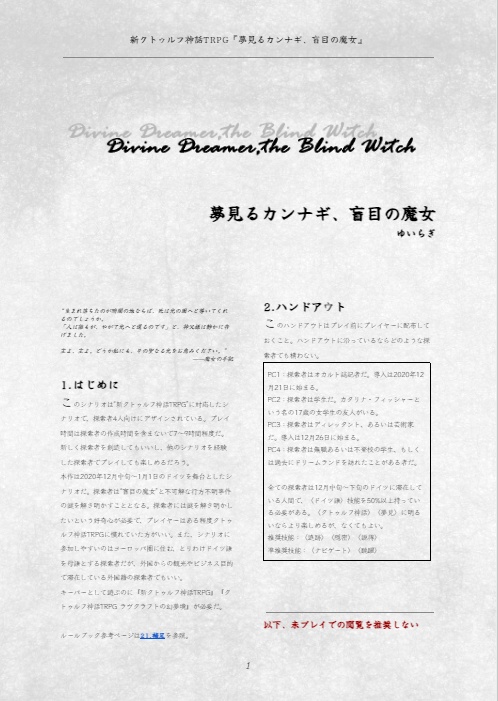 新クトゥルフ神話TRPG『夢見るカンナギ、盲目の魔女』
Divine Dreamer,the Blind Witch
Divine Dreamer,the Blind Witch
夢見るカンナギ、盲目の魔女
ゆいらぎ
“生まれ落ちたのが暗闇の地ならば、死は光の園へと導いてくれ
るのでしょうか。
「人は皆そが、やがて光へと還るのです」と、
主よ、主よ、どうか私にも、その聖なる光をお恵みください。”
――魔女の手記
1.はじめに
このシナリオは“新クトゥルフ神話TRPG”に対応したシ
ナリオで、探索者4人向けにデザインされている。プレイ
時間は探索者の作成時間を含まないで7～9時間程度だ。
新しく探索者を創造してもいいし、他のシナリオを経験
した探索者でプレイしても楽しめるだろう。
本作は2020年12月中旬～1月1日のドイツを舞台としたシ
ナリオだ。探索者は“盲目の魔女”と不可解な行方不明事件
の謎を解き明かすこととなる。探索者には謎を解き明かし
たいという好奇心が必要で、プレイヤーはある程度クトゥ
ルフ神話TRPGに慣れていた方がいい。また、シナリオに
参加しやすいのはヨーロッパ圏に住む、とりわけドイツ語
を母語とする探索者だが、外国からの観光やビジネス目的
で滞在している外国籍の探索者でもいい。
キーパーとして遊ぶのに『新クトゥルフ神話TRPG』『ク
トゥルフ神話TRPG ラヴクラフトの幻夢境』が必要だ。
ルールブック参考ページは21.補足を参照。
2.ハンドアウト
このハンドアウトはプレイ前にプレイヤーに配布して
おくこと。ハンドアウトに沿っているならどのような探
索者でも構わない。
PC1：探索者はオカルト誌記者だ。導入は2020年12
月21日に始まる。
PC2：探索者は学生だ。カタリナ・フィッシャーと
いう名の17歳の女学生の友人がいる。
PC3：探索者はディレッタント、あるいは芸術家
だ。導入は12月26日に始まる。
PC4：探索者は無職あるいは不登校の学生。もしく
は過去にドリームランドを訪れたことがある者だ。
全ての探索者は12月中旬～下旬のドイツに滞在して
いる人間で、〈ドイツ語〉技能を50%以上持ってい
る必要がある。〈クトゥルフ神話〉〈夢見〉に明る
いならより楽しめるが、なくてもよい。
推奨技能：〈追跡〉〈隠密〉〈説得〉
準推奨技能：〈ナビゲート〉〈鍵開〉
以下、未プレイでの閲覧を推奨しない
1